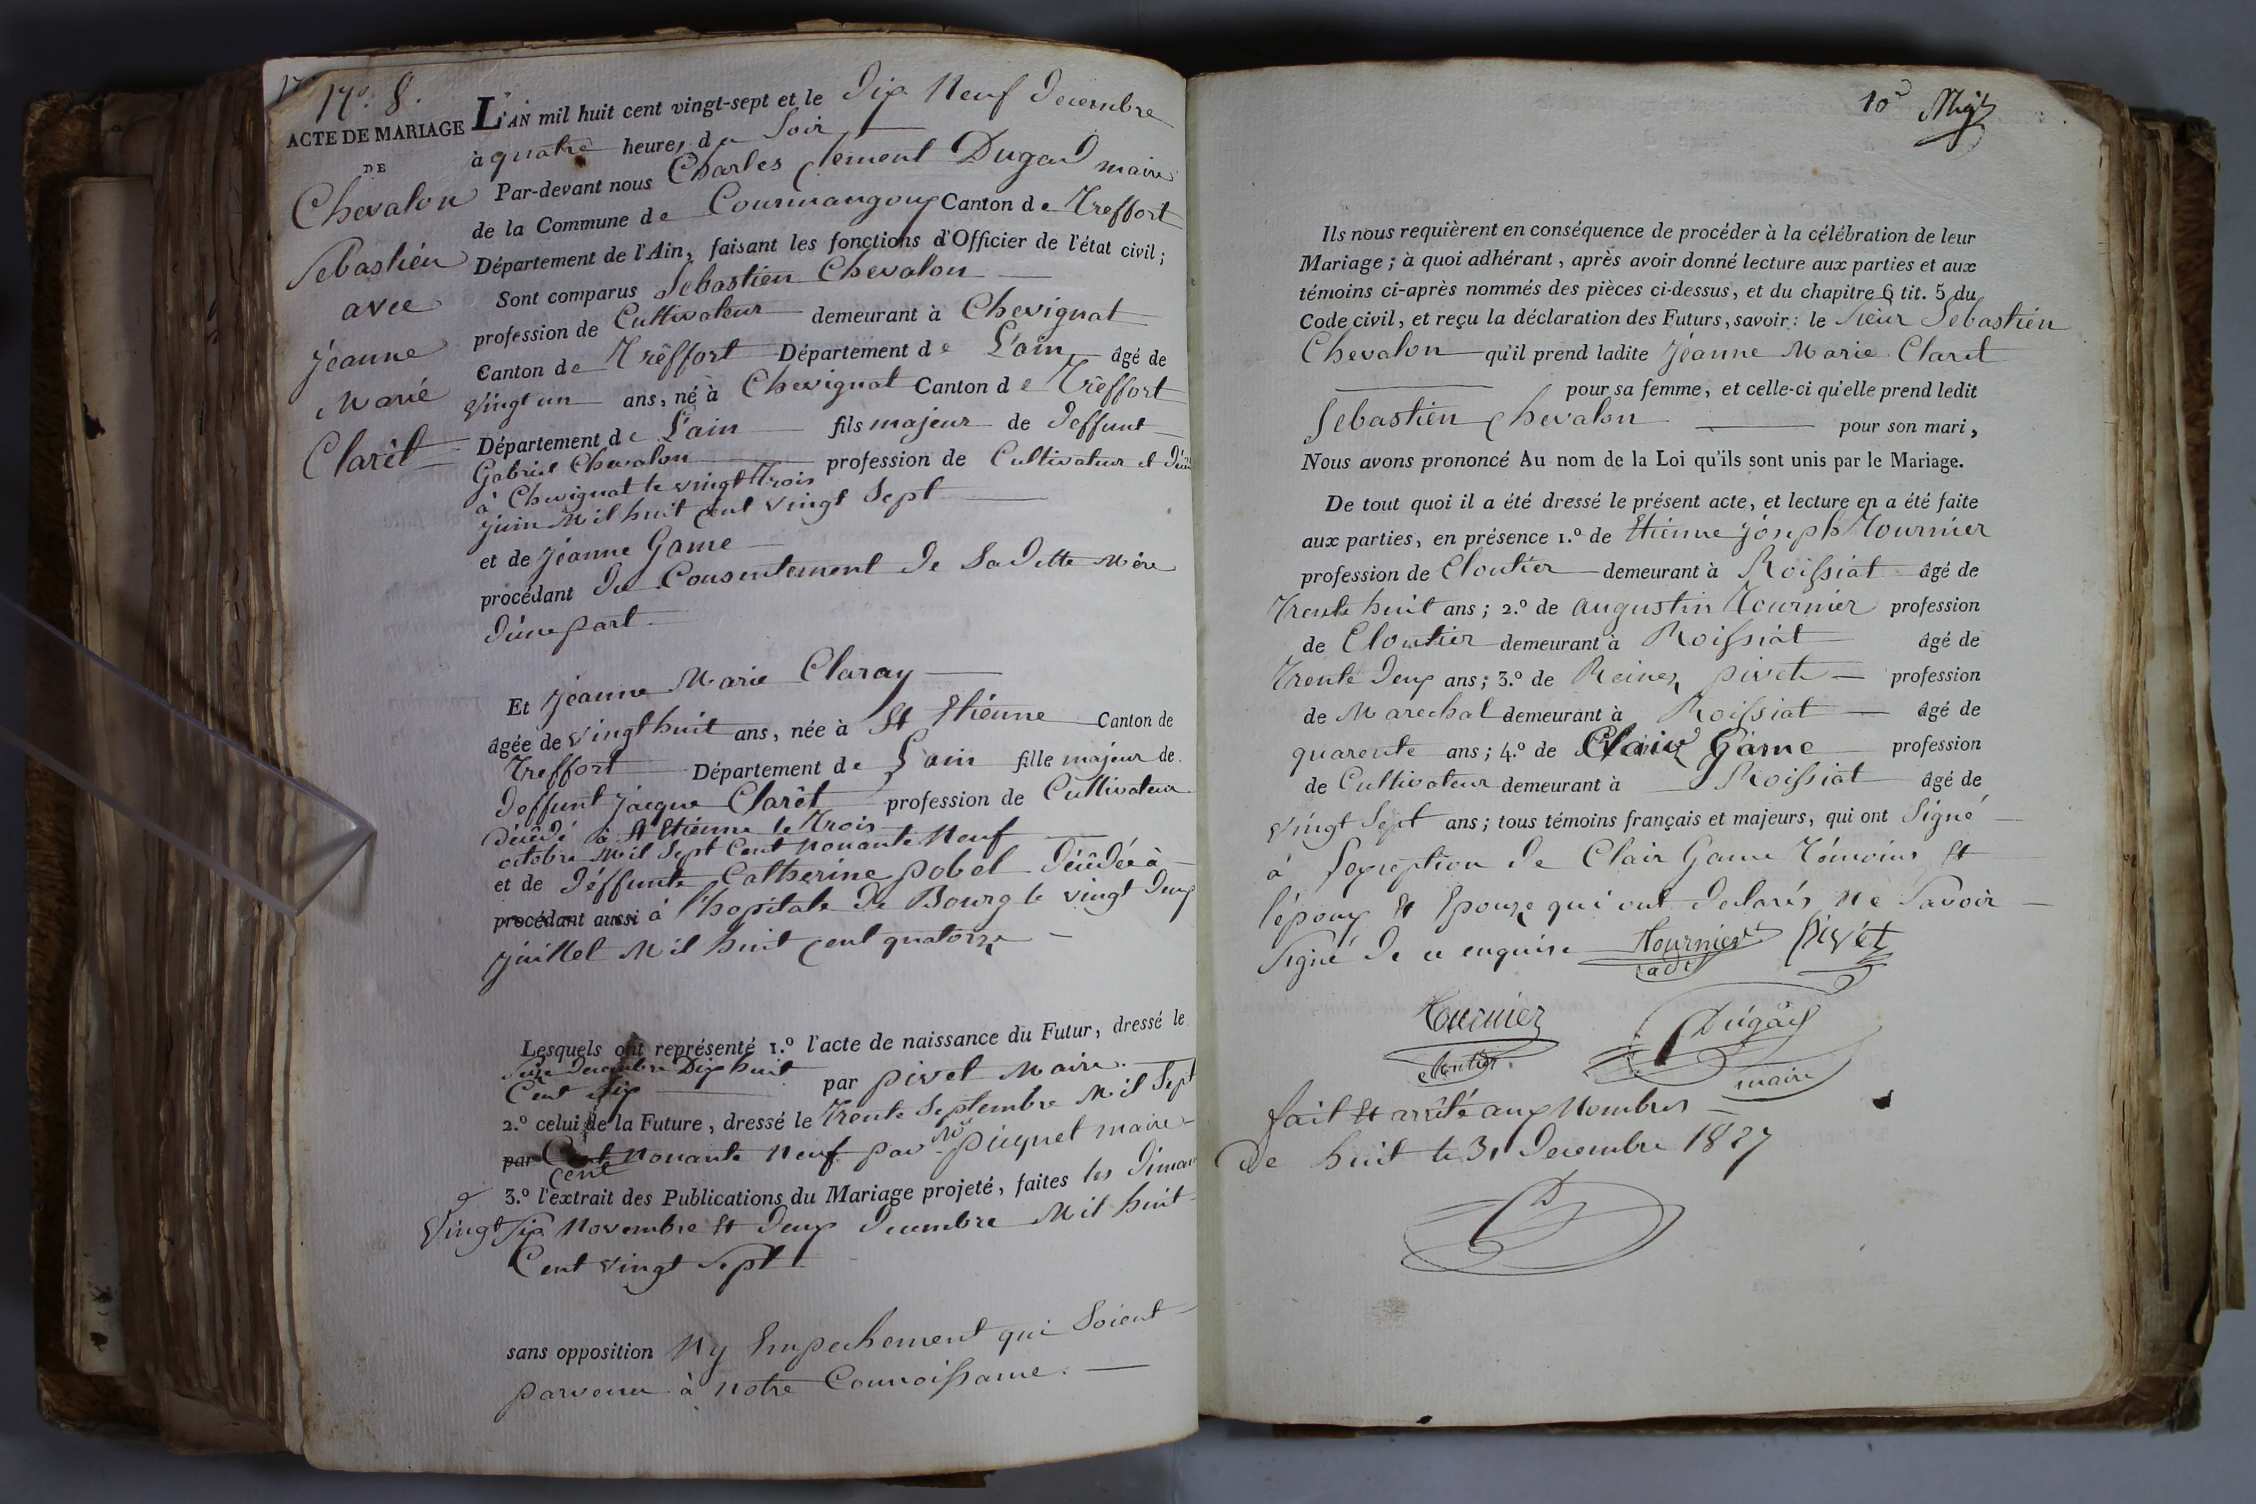 N.° 8.
ACTE DE MARIAGE
DE
Chevalon
Sebastién
avec
Jéanne
Marié
Clarêt
L'AN mil huit cent vingt-sept et le Dix Neuf Decembre
à quatre heures du Soir
Par-devant nous Charles Clement Dugad maire
de la Commune de Courmangoux Canton de Treffort
Département de l'Ain, faisant les fonctions d'Officier de l'état civil;
Sont comparus Sebastien Chevalon
profession de Cultivateur demeurant à Chevignat
Canton de Trêffort Département de L'ain âgé de
vingt un ans, né à Chevignat Canton de Trêffort
Département de L'ain fils majeur de Deffunt
Gabriel Chevalon profession de Cultivateur et
à Chevignat le vingt trois
juin Mil huit cent vingt Sept
et de Jéanne Game
procédant du Consentement de Saditte Mère
d'une part
Et Jéanne Marie Claray
âgée de vingt huit ans, née à St Etiénne Canton de
Treffort Département de L'ain fille majeur de
Deffunt Jacque Clarêt profession de Cultivateur
décêdé à St Etiénne le Trois
octobre Mil Sept Cent Nonante Neuf
et de Déffunte Catherine pobel Décêdée à
procédant aussi à l'hopitale de Bourg le vingt Deux
juillet Mil huit Cent quatorze
Lesquels ont représenté 1.° l'acte de naissance du Futur, dressé le
Seize Decembre Dix huit
Cent Six par pivet Maire.
2.° celui de la Future, dressé le Trente Septembre Mil Sept
par Cent Nonante Neuf par Mr piquet maire
Cent
3.° l'extrait des Publications du Mariage projeté, faites les Diman
Vingt Six Novembre Et Deux Decembre Mil huit
Cent vingt Sept
sans opposition Ny Empechement qui Soient
parvenu à notre Connoissance.
10e
Ils nous requièrent en conséquence de procéder à la célébration de leur
Mariage; à quoi adhérant, après avoir donné lecture aux parties et aux
témoins ci-après nommés des pièces ci-dessus, et du chapitre 6 tit. 5 du
Code civil, et reçu la déclaration des Futurs, savoir: le Sieur Sebastién
Chevalon qu'il prend ladite Jéanne Marie Claret
pour sa femme, et celle-ci qu'elle prend ledit
Sebastien Chevalon pour son mari,
Nous avons prononcé Au nom de la Loi qu'ils sont unis par le Mariage.
De tout quoi il a été dressé le présent acte, et lecture en a été faite
aux parties, en présence 1.° de Etiénne Joseph Tournier
profession de Cloutier demeurant à Roissiat âgé de
Trente huit ans; 2.° de augustin Tournier profession
de Cloutier demeurant à Roissiat âgé de
Trente Deux ans; 3.° de Reinex pivet profession
de Marechal demeurant à Roissiat âgé de
quarente ans; 4.° de Clair Game profession
de Cultivateur demeurant à Roissiat âgé de
vingt Sept ans; tous témoins français et majeurs, qui ont Signé
à l'exeption de Clair Game Témoins Et
l'époux Et Epouze qui ont declarés Ne Savoir
Signé de ce enquise Tournier Pivet
Tournier
Dugad
maire
fait Et arrêté aux Nombres
De huit le 31 Decembre 1827